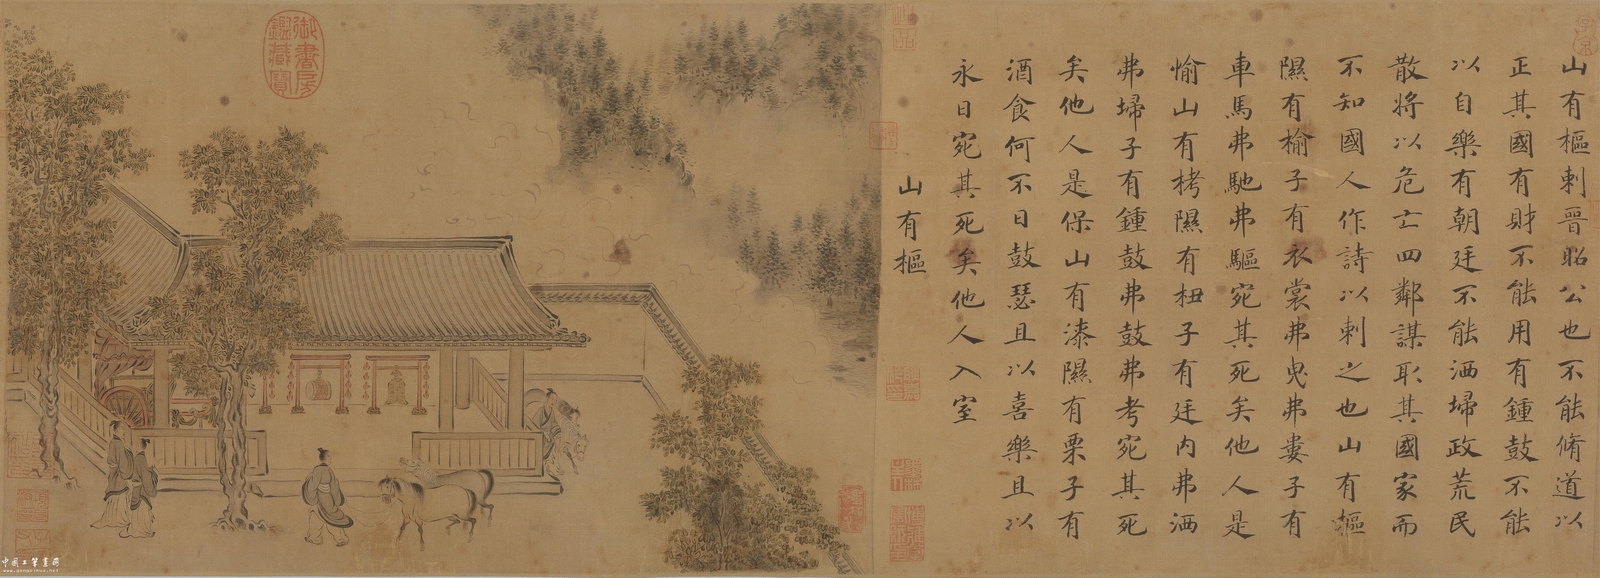 山有樞刺晉昭公也不能脩道以
正其國有財不能用有鍾鼓不能
以自樂有朝廷不能洒埽政荒民
散將以危亡四鄰謀取其國家而
不知國人作詩以刺之也山有樞
隰有榆子有衣裳弗曳弗婁子有
車馬弗馳弗驅宛其死矣他人是
愉山有栲隰有杻子有廷内弗洒
弗埽子有鍾鼓弗鼓弗考宛其死
矣他人是保山有漆隰有栗子有
酒食何不日鼓瑟且以喜樂且以
永日宛其死矣他人入室
山有樞
御書房
鑑藏寶
中国工笔画网
www.gongbihua.net